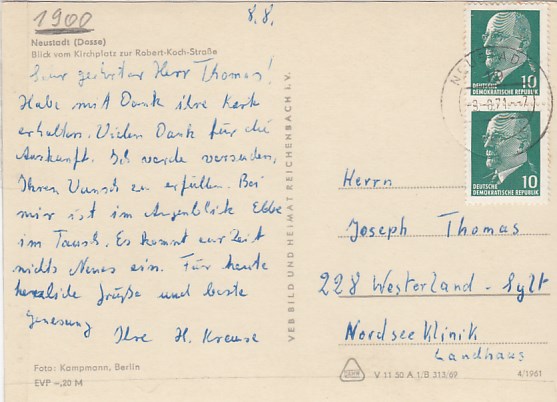 1900
8.8.
Neustadt (Dosse)
Blick vom Kirchplatz zur Robert-Koch-Straße
Sehr geehrter Herr Thomas!
Habe mit Dank ihre Karte
erhalten. Vielen Dank für die
Auskunft. Ich werde versuchen,
Ihren Wunsch zu erfüllen. Bei
mir ist im Augenblick Ebbe
im Tausch. Es kommt zur Zeit
nichts Neues ein. Für heute
herzliche Grüße und beste
Genesung
Ihre H. Krause
Foto: Kampmann, Berlin
EVP –,20 M
VEB BILD UND HEIMAT REICHENBACH I. V.
10
DEUTSCHE
DEMOKRATISCHE REPUBLIK
10
DEUTSCHE
DEMOKRATISCHE REPUBLIK
Herrn
Joseph Thomas
228 Westerland - Sylt
Nordseeklinik
Landhaus
V 11 50 A 1/B 313/69
4/1961